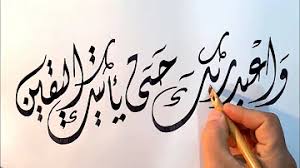 وَاعبد ربّك حَتى يأتيك اليقين